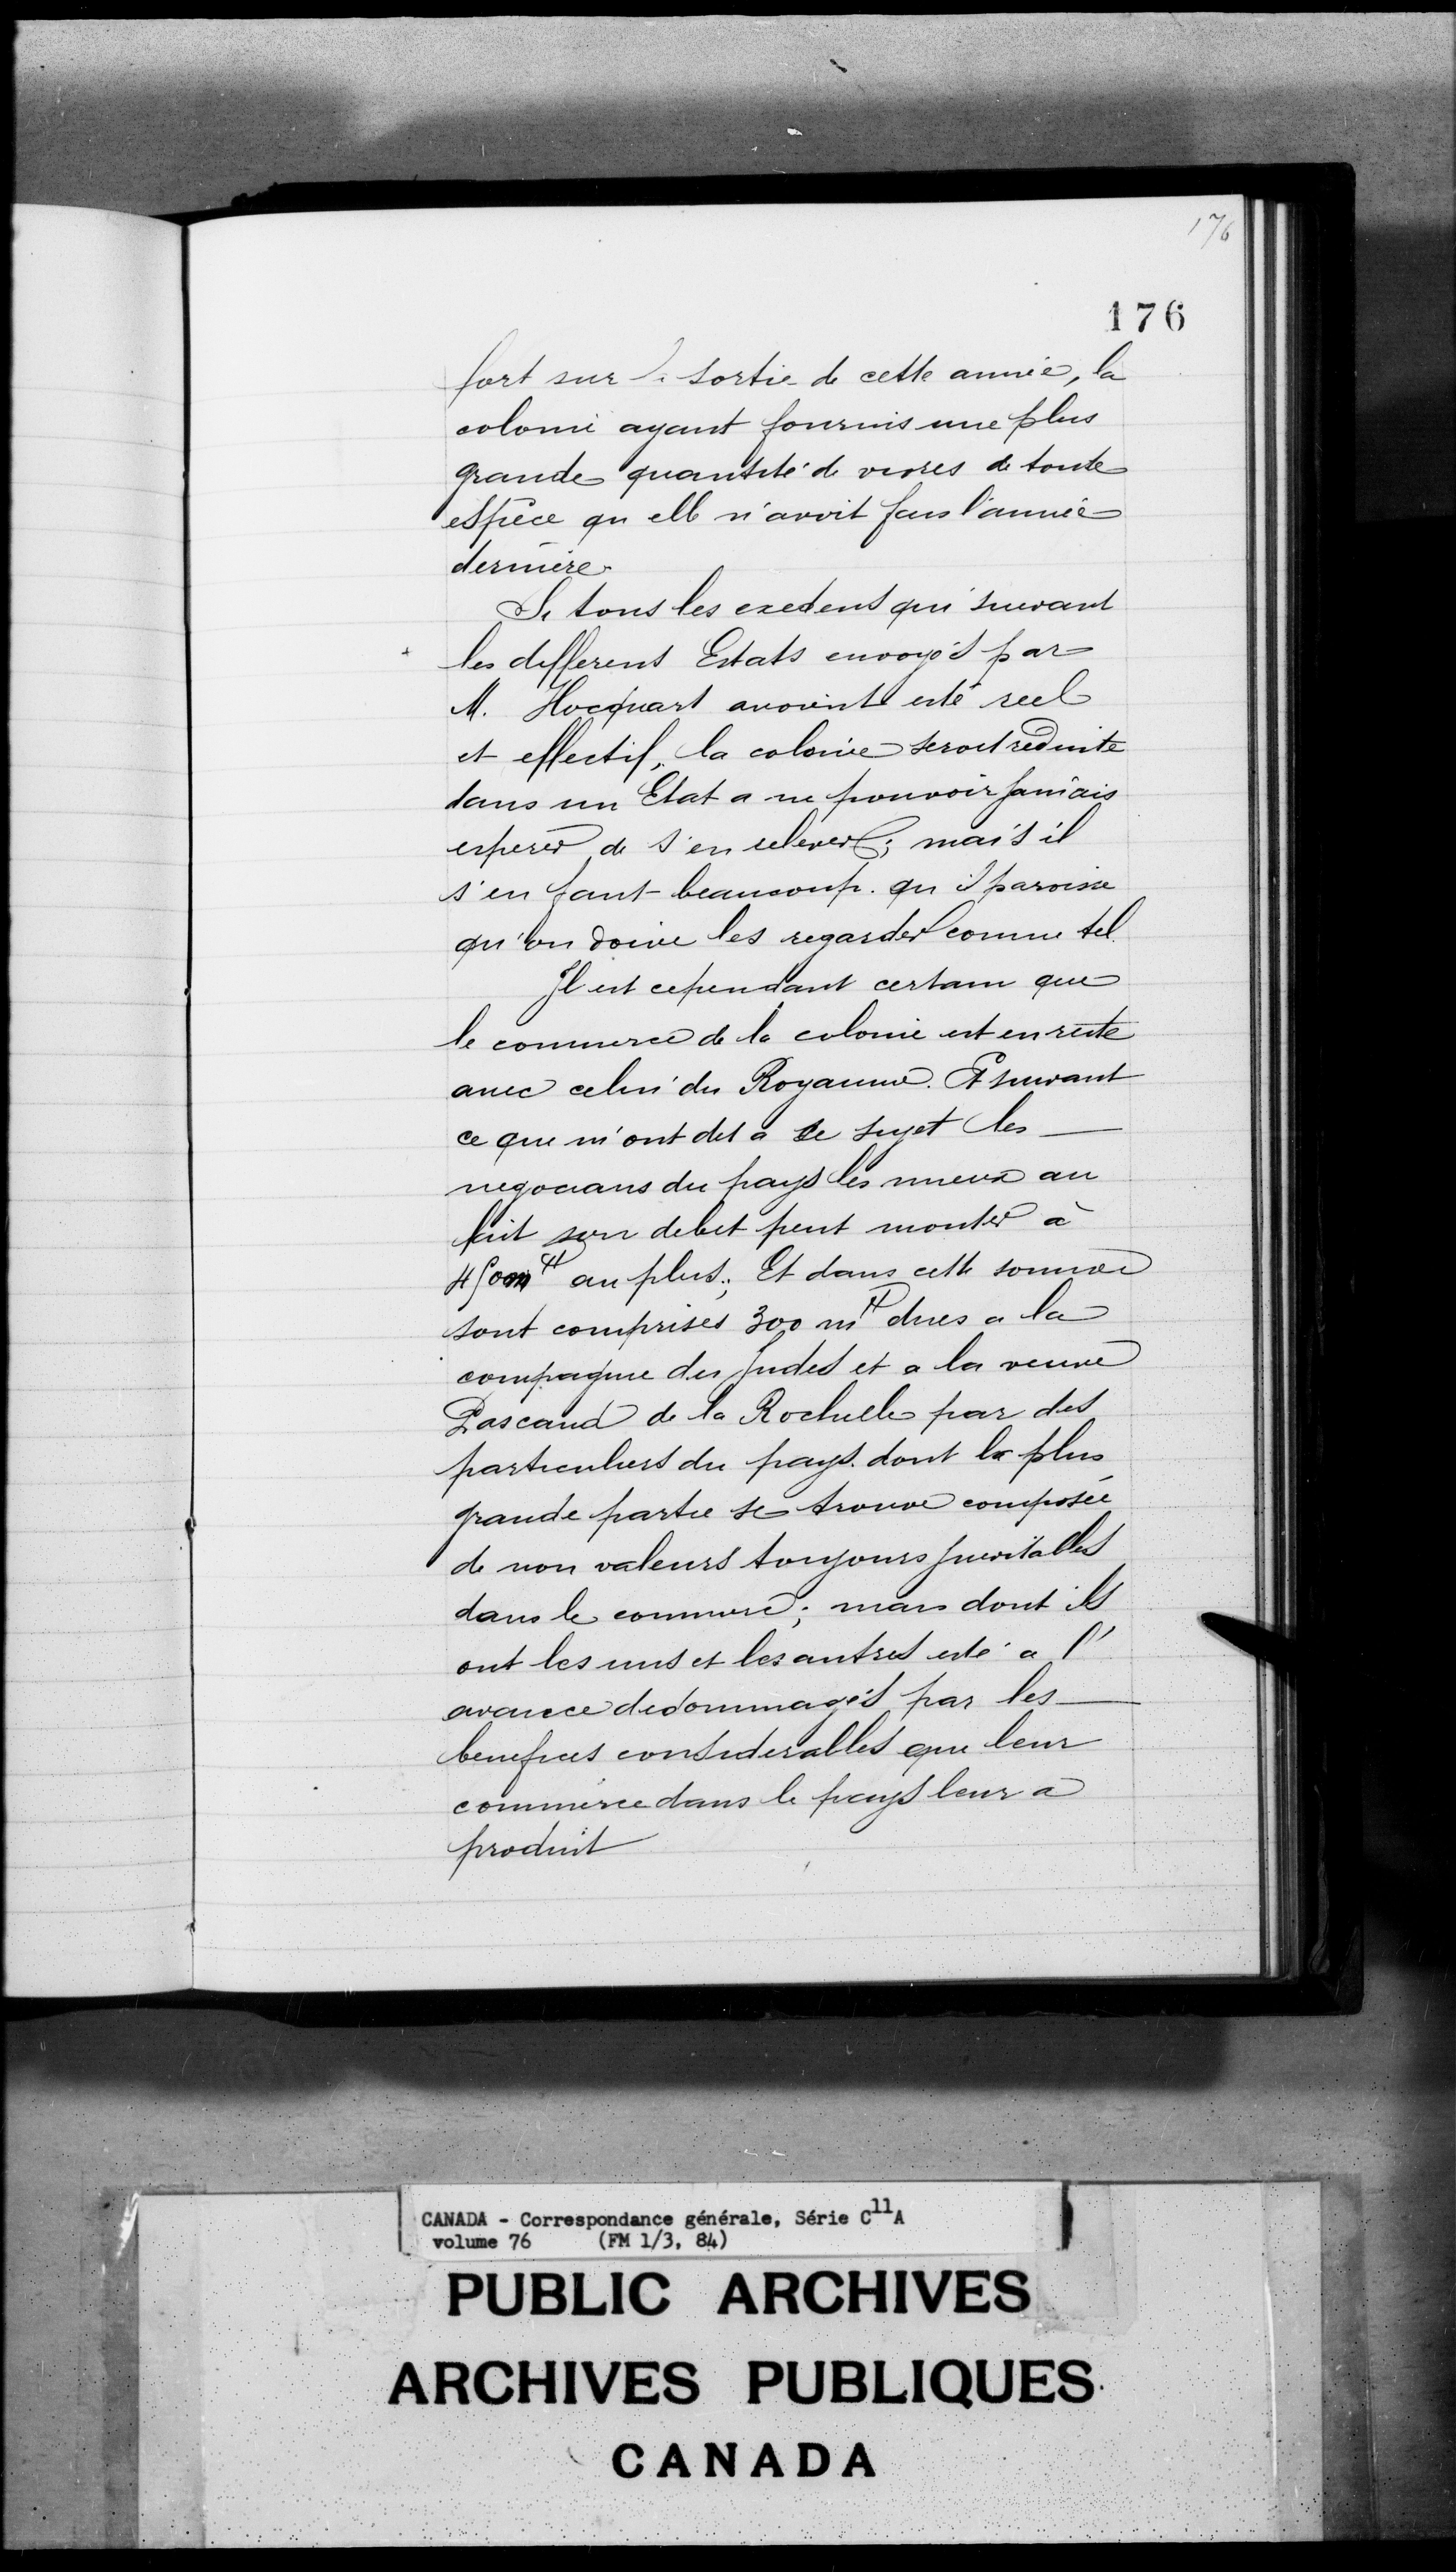 176
176
fort sur la sortie de cette année, la
colonie ayant fournis une plus
grande quantité de vivres de toute
espèce qu elle n'avoit fais l'année
dernière.
Si tous les exedens qui suivant
les differens Estats envoyés par
M. Hocquart avoient esté reel
et effectif, la colonie seroit reduite
dans un Etat a ne pouvoir Jamais
esperer de s'en relever; mais il
s'en faut beaucoup. qu il paroisse
qu'on doive les regarder comme tel.
Il est cependant certain que
le commerce de la colonie est en reste
avec celui du Royaume. Et suivant
ce que m'ont dit a ce sujet les
negocians du pays les mieux au
fait son debet peut monter à
450m ₶ au plus; Et dans cette somme
sont comprises 300 m ₶ dues a la
compagnie des Indes et a la veuve
Pascaud de la Rochelle par des
particuliers du pays. dont la plus
grande partie se trouve composée
de non valeurs toujours Inevitables
dans le commerce; mais dont ils
ont les uns et les autres esté a l'
avance dedommagés par les
benefices considerables que leur
commerce dans le pays leur a
produit
CANADA - Correspondance générale, Série C11A
volume 76 (FM 1/3, 84)
PUBLIC ARCHIVES
ARCHIVES PUBLIQUES
CANADA